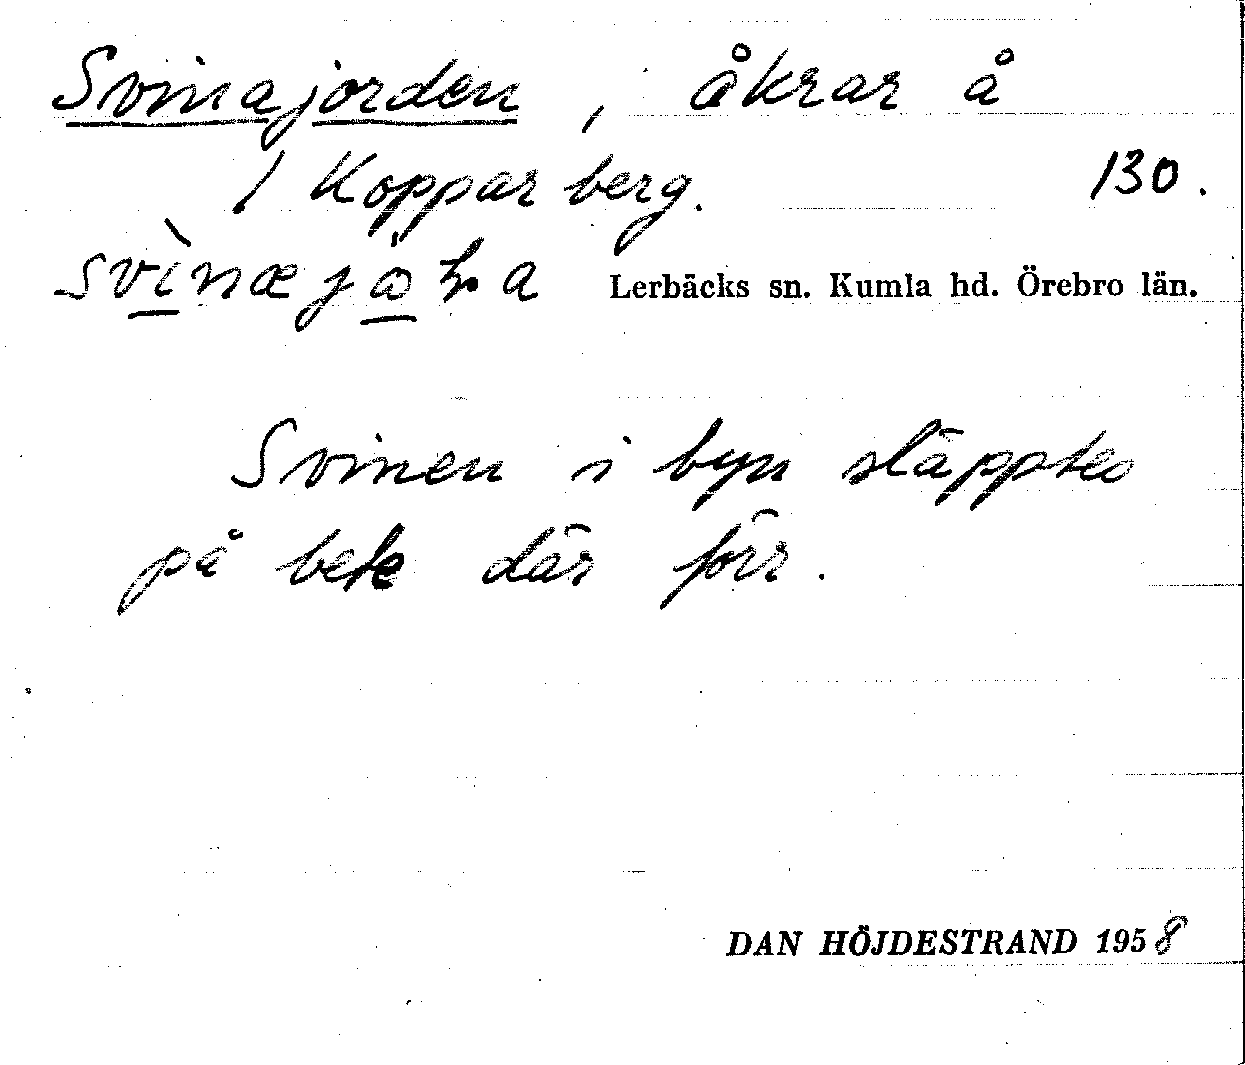 Svinajorden, åkrar å
1 Kopparberg. 130.
Lerbäcks sn. Kumla hd. Örebro län.
Svinen i byn släpptes
på bete där förr.
DAN HÖJDESTRAND 1958